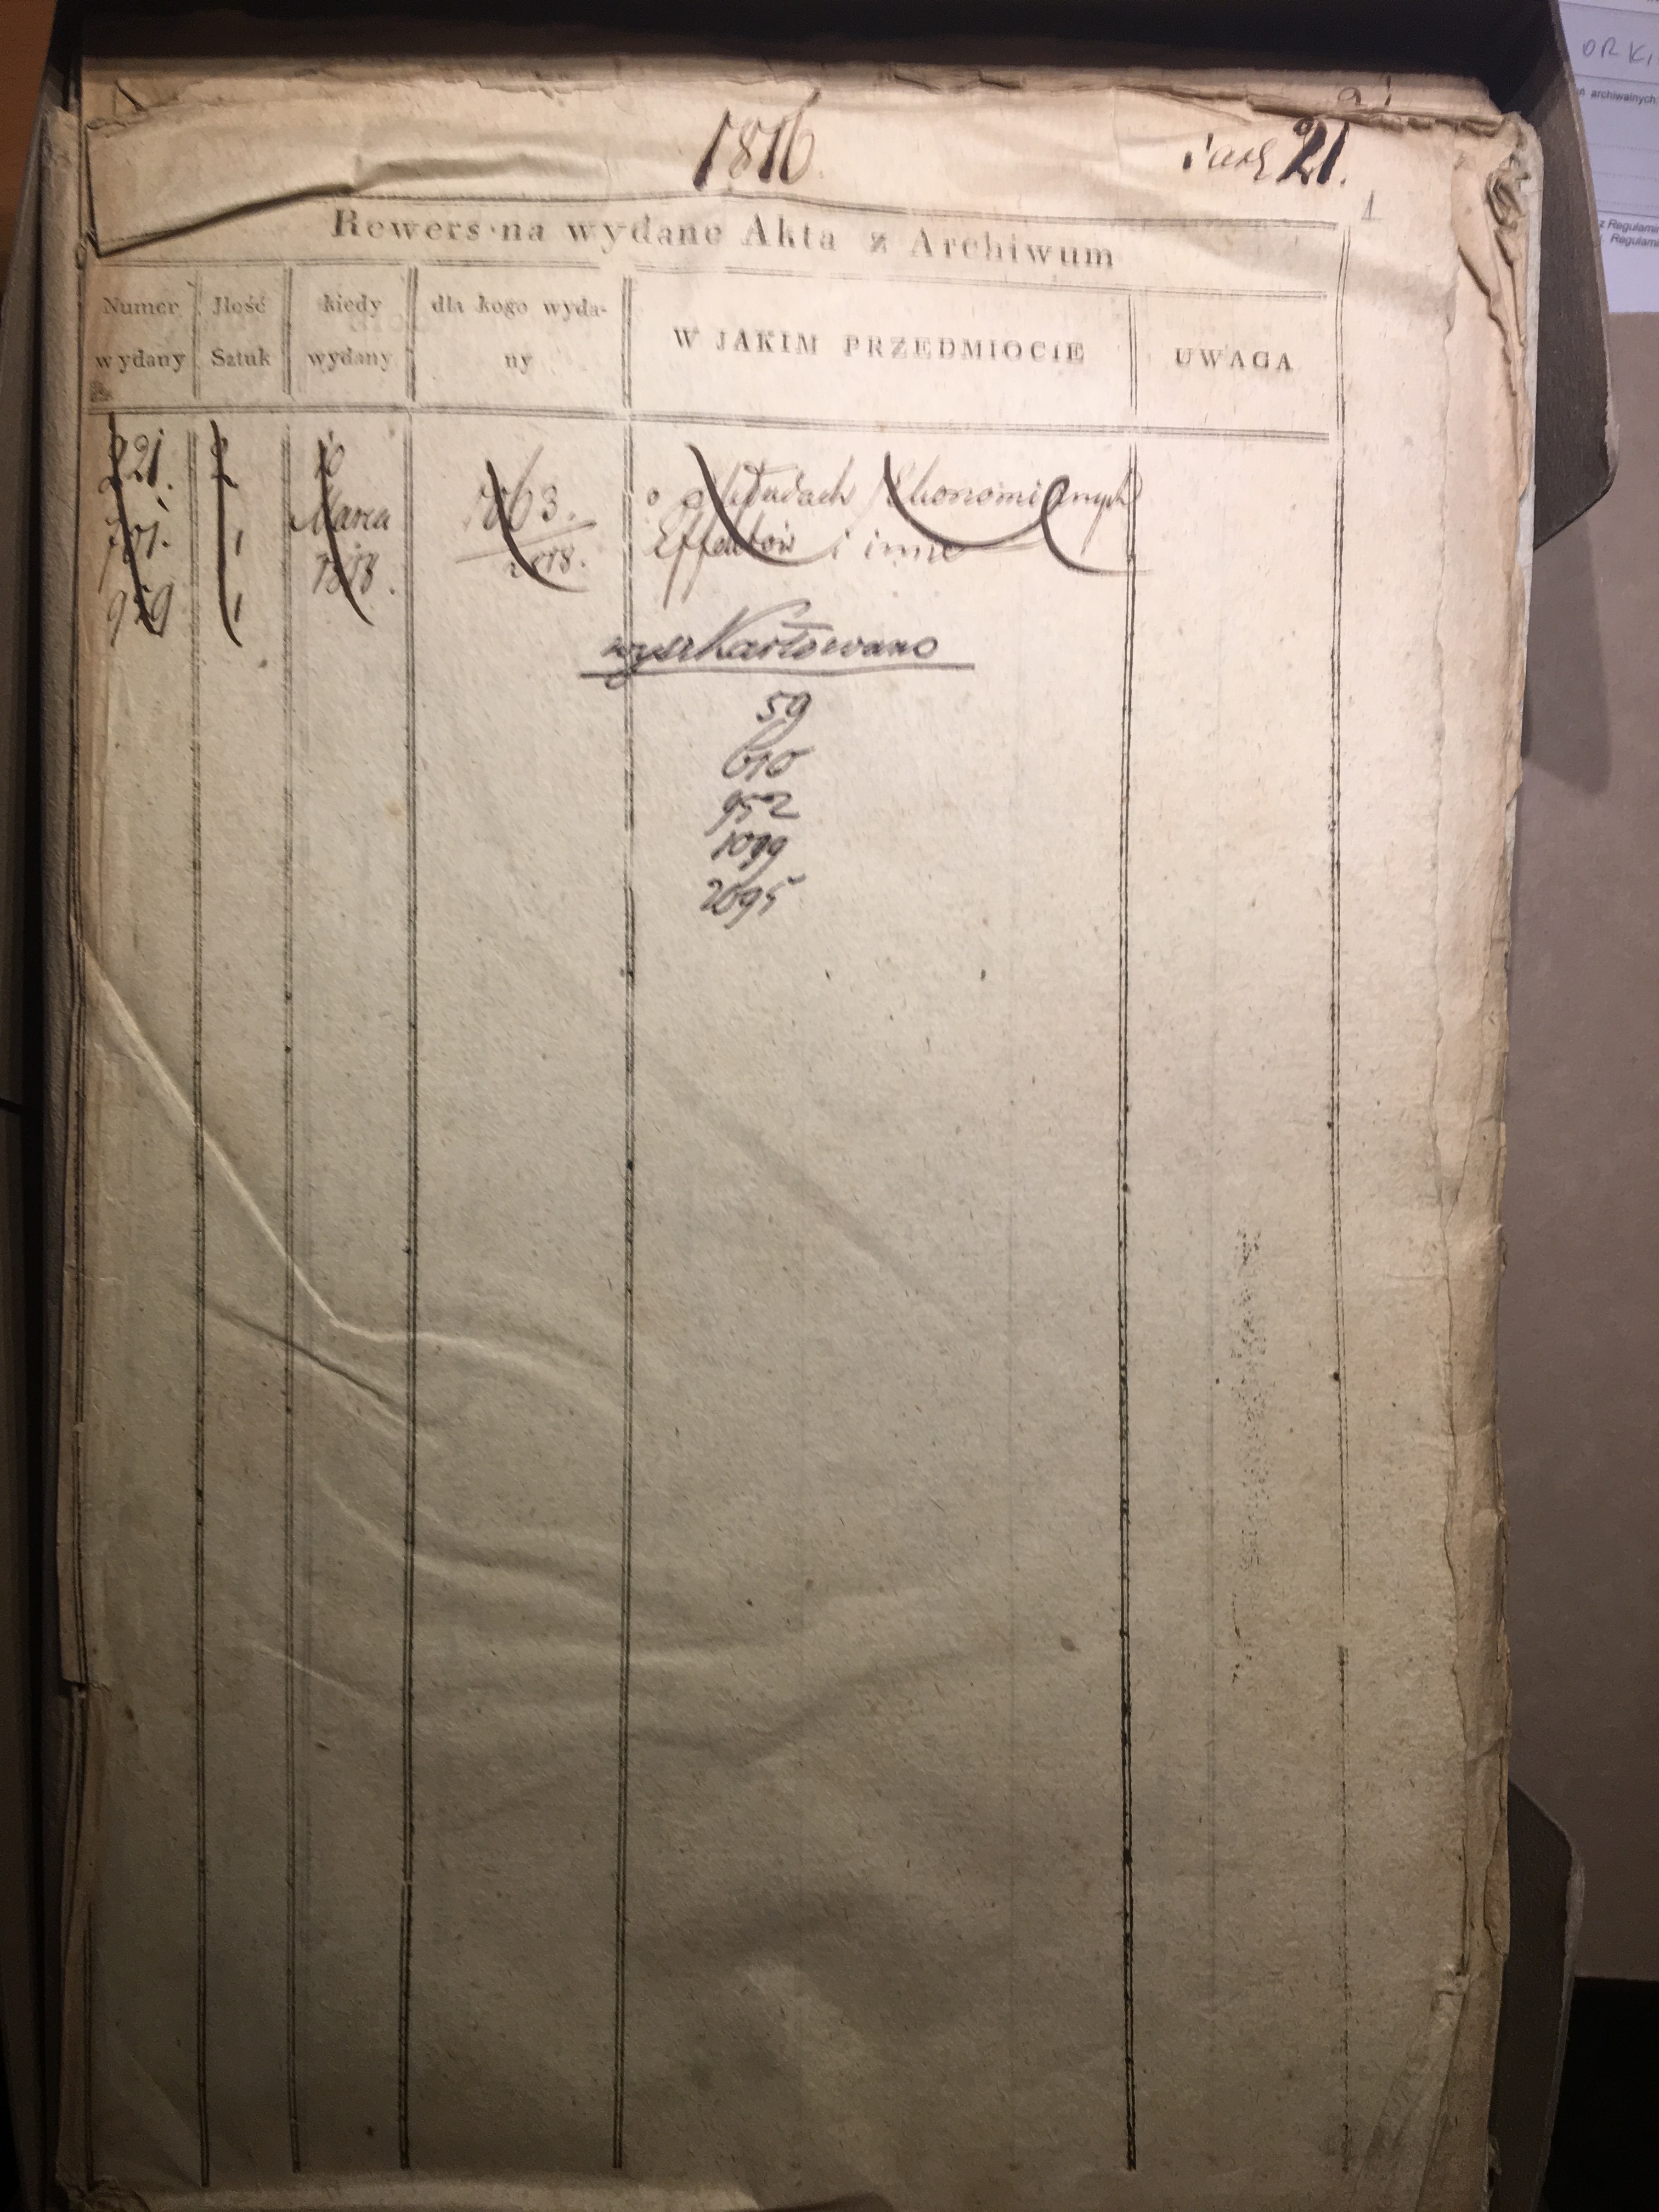 1816.
21.
1
Rewers na wydane Akta z Archiwum
Numer wydany
Jlość Sztuk
kiedy wydany
dla kogo wydany-
ny
W JAKIM PRZEDMIOCIE
UWAGA
221. 2 10
701. 1 Marca
959 1 1818.
1863.
1818.
o Ekonomicznych
Effektów i inne
wyszkartowano
59
610
952
1099
2695
archiwalnych
z Regulamin
Regulami